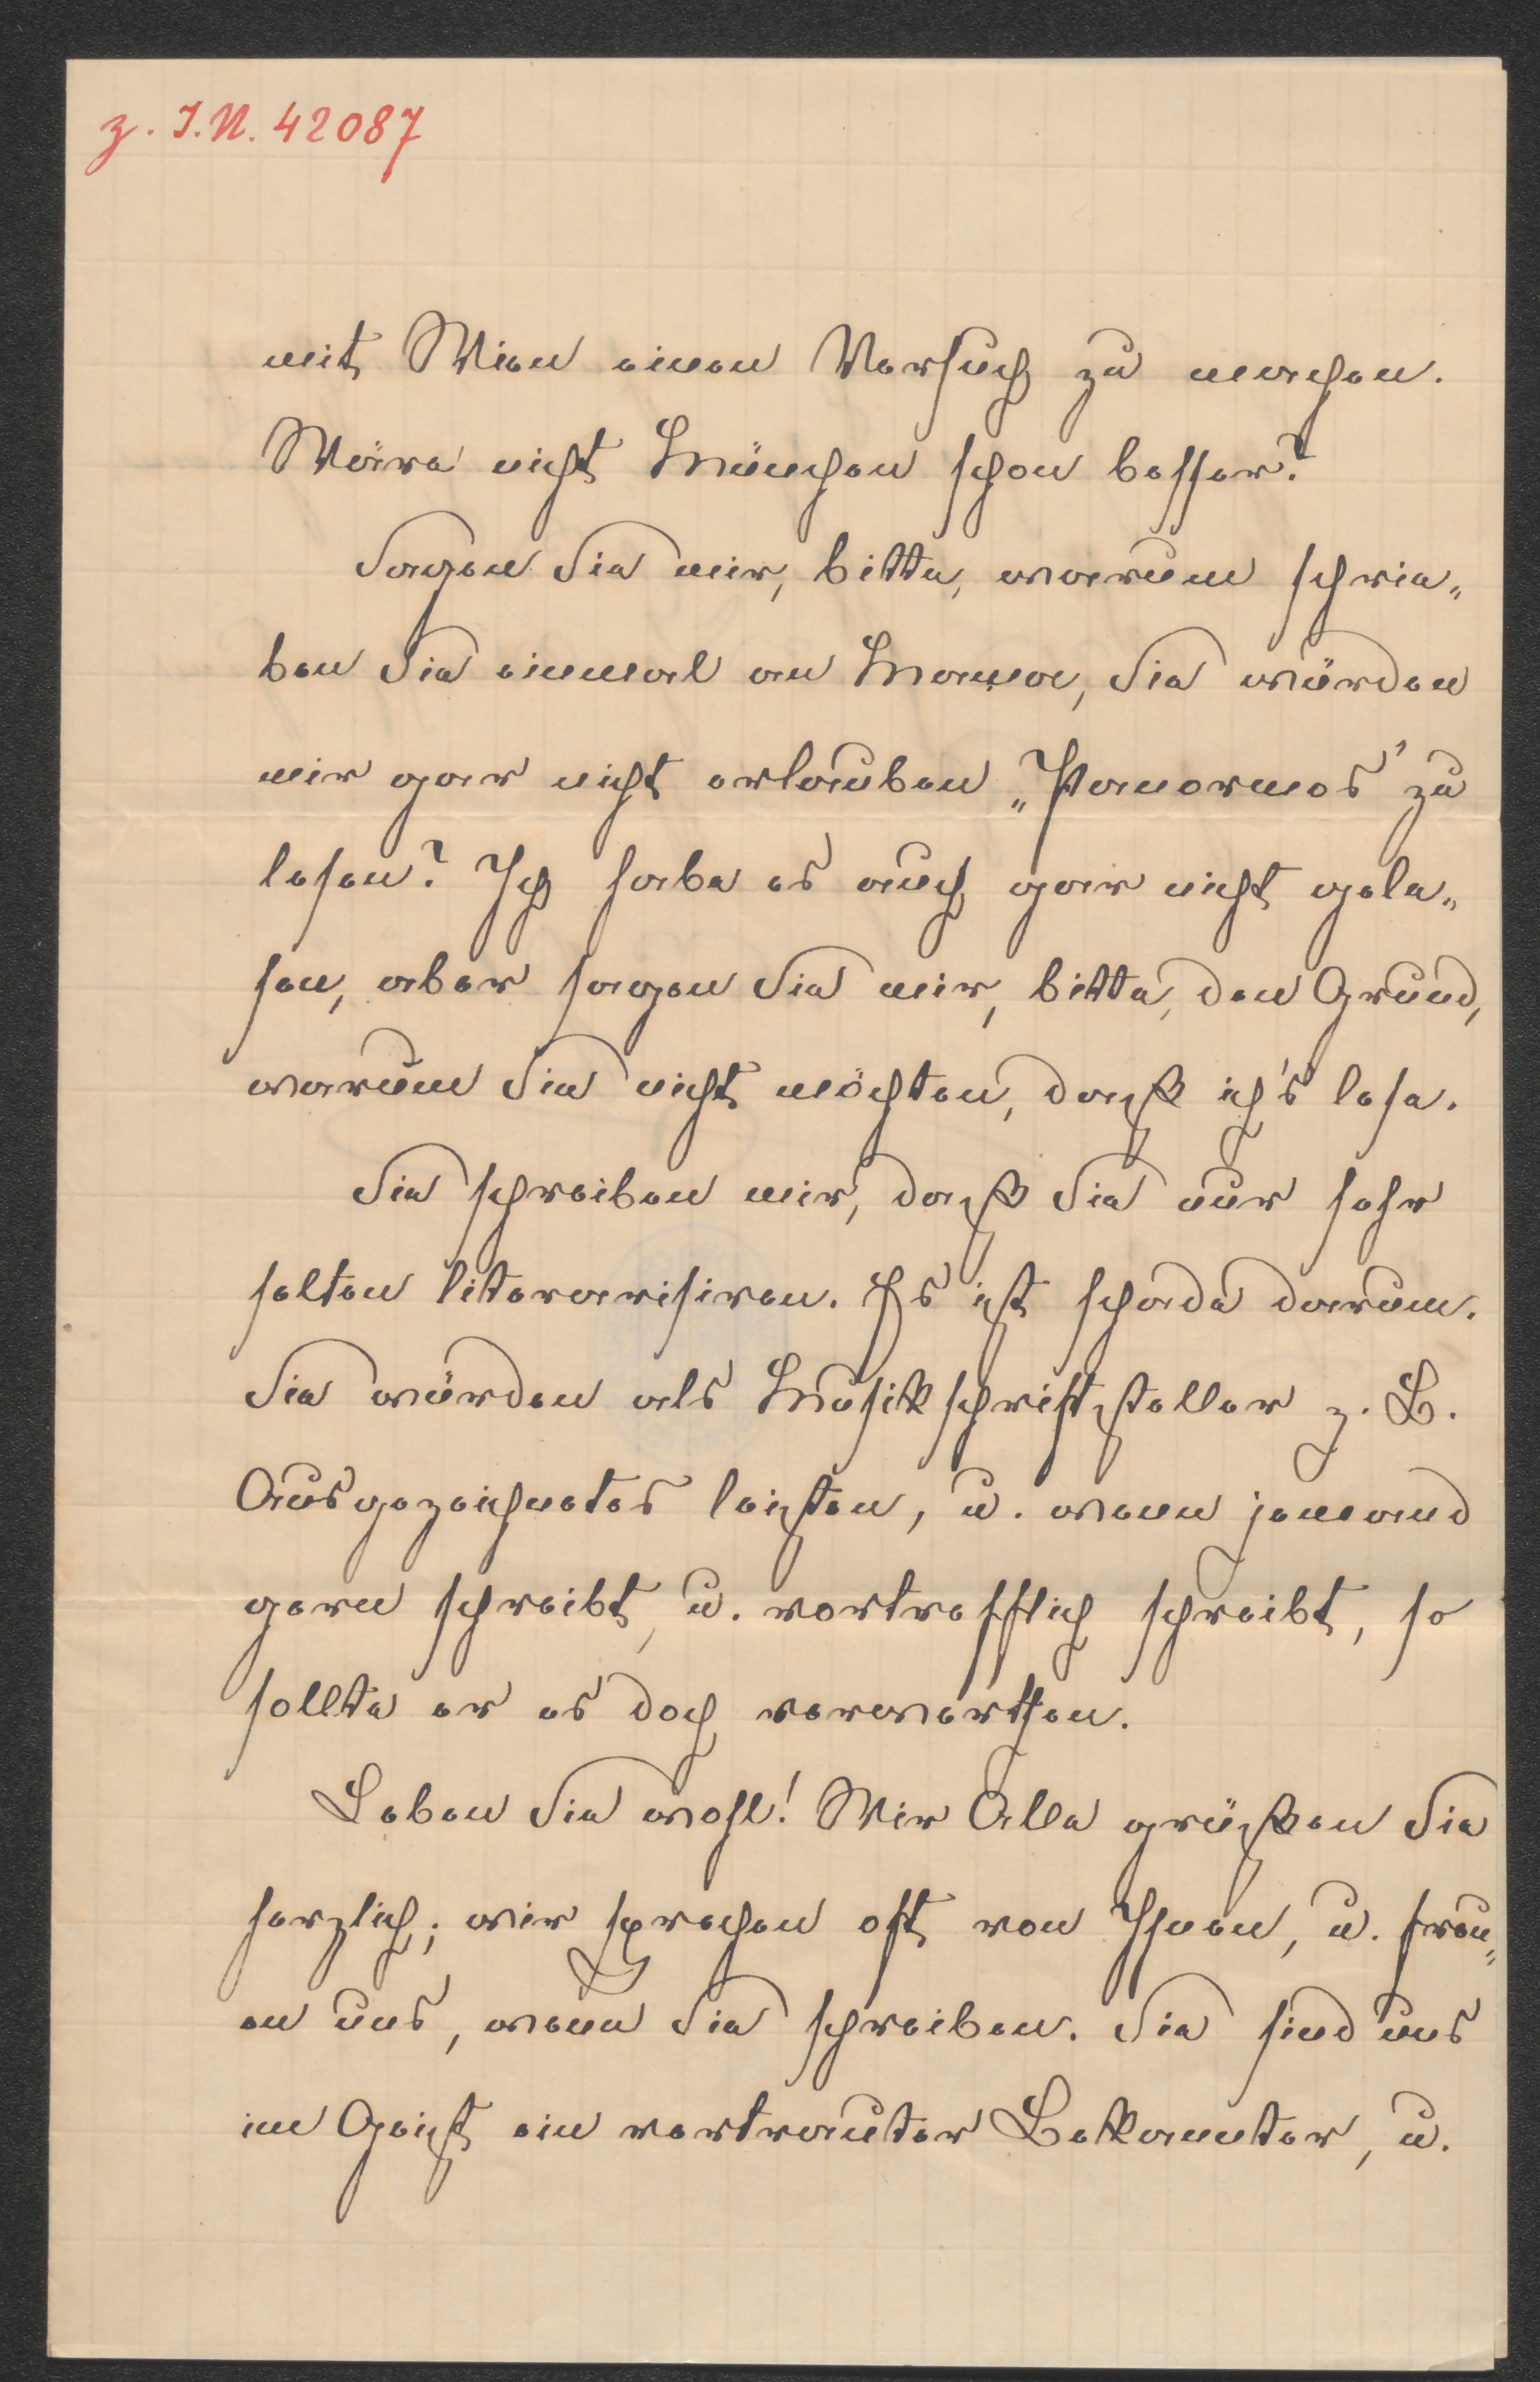 z. I.N. 42087
mit Wien einen Versuch zu machen.
Wäre nicht München schon besser?
Sagen Sie mir, bitte, warum schrie„
ben Sie einmal an Mama, Sie würden
mir gar nicht erlauben „Panormos" zu
lesen? Ich habe es auch gar nicht gele„
sen, aber sagen Sie mir, bitte, den Grund,
warum Sie nicht möchten, daß ich's lese.
Sie schreiben mir, daß Sie nur sehr
selten literarisiren. Es ist schade darum.
Sie würden als Musikschriftsteller z. B.
Ausgezeichnetes leisten, u. wenn jemand
gern schreibt, u. vortrefflich schreibt, so
sollte er es doch verwerthen.
Leben Sie wohl! Wir Alle grüßen Sie
herzlich; wir sprechen oft von Ihnen, u. freu„
en uns, wenn Sie schreiben. Sie sind uns
im Geist ein vertrauter Bekannter, u.